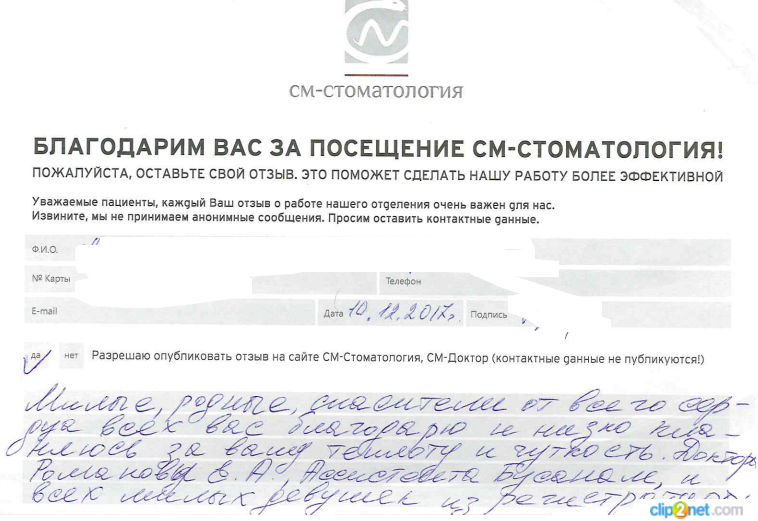 СМ-СТОМАТОЛОГИЯ
БЛАГОДАРИМ ВАС ЗА ПОСЕЩЕНИЕ СМ-СТОМАТОЛОГИЯ!
ПОЖАЛУЙСТА, ОСТАВЬТЕ СВОЙ ОТЗЫВ. ЭТО ПОМОЖЕТ СДЕЛАТЬ НАШУ РАБОТУ БОЛЕЕ ЭФФЕКТИВНОЙ
Уважаемые пациенты, каждый Ваш отзыв о работе нашего отделения очень важен для нас.
Извините, мы не принимаем анонимные сообщения. Просим оставить контактные данные.
Ф.И.О.
№ Карты Телефон
E-mail Дата 10.12.2017г. Подпись
да нет Разрешаю опубликовать отзыв на сайте СМ-Стоматология, СМ-Доктор (контактные данные не публикуются!)
Милые, родные, спасители от всего сер-
дца всех вас благодарю и низко кла-
няюсь за вашу теплоту и чуткость. Доктора
Романовы Е. А., Ассистента Бусанам, и
всех милых девушек из регистратуры.
clip2net.com